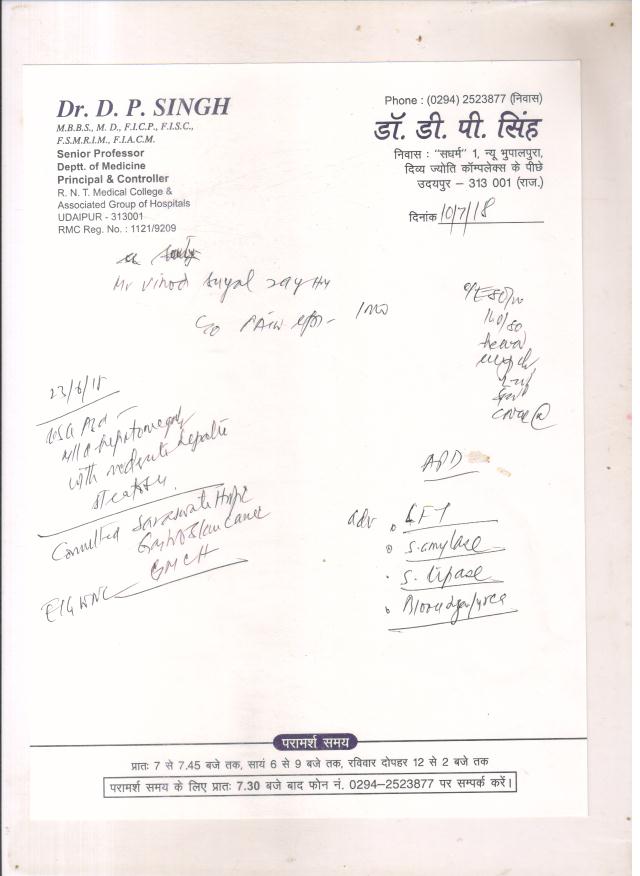 Dr. D. P. SINGH
M.B.B.S., M. D., F.I.C.P., F.I.S.C.,
F.S.M.R.I.M., F.I.A.C.M.
Senior Professor
Deptt. of Medicine
Principal & Controller
R. N. T. Medical College &
Associated Group of Hospitals
UDAIPUR - 313001
RMC Reg. No. : 1121/9209
Phone : (0294) 2523877 (निवास)
डॉ. डी. पी. सिंह
निवास : "सधर्म" 1, न्यू भुपालपुरा,
दिव्य ज्योति कॉम्पलेक्स के पीछे
उदयपुर – 313 001 (राज.)
दिनांक 10/7/18
Mr Vinod
c/o Pain
110/80
23/6/18
USG
hepatomegaly
with moderate hepatic
steatosis
Consulted
GMCH
APD
adv
LFT
S. amylase
S. lipase
परामर्श समय
प्रातः 7 से 7.45 बजे तक, सायं 6 से 9 बजे तक, रविवार दोपहर 12 से 2 बजे तक
परामर्श समय के लिए प्रातः 7.30 बजे बाद फोन नं. 0294–2523877 पर सम्पर्क करें।